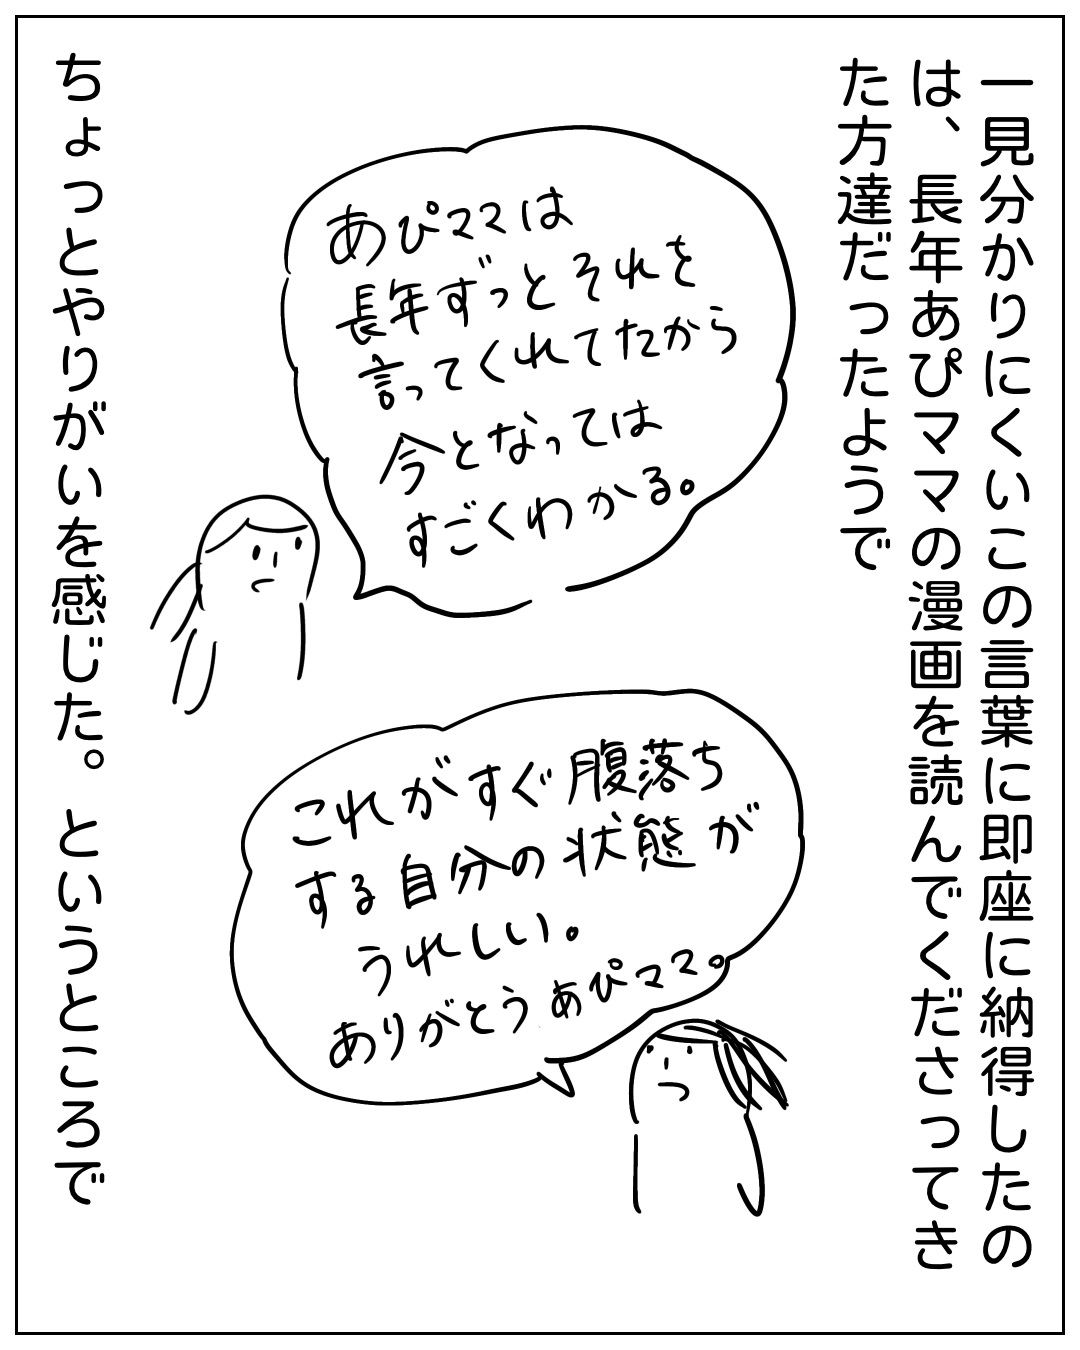 一見分かりにくいこの言葉に即座に納得したの
は、長年あぴママの漫画を読んでくださってき
た方達だったようで
あぴママは
長年ずっとそれを
言ってくれてたから
今となっては
すごくわかる。
これがすぐ腹落ち
する自分の状態が
うれしい。
ありがとうあぴママ。
ちょっとやりがいを感じた。というところで